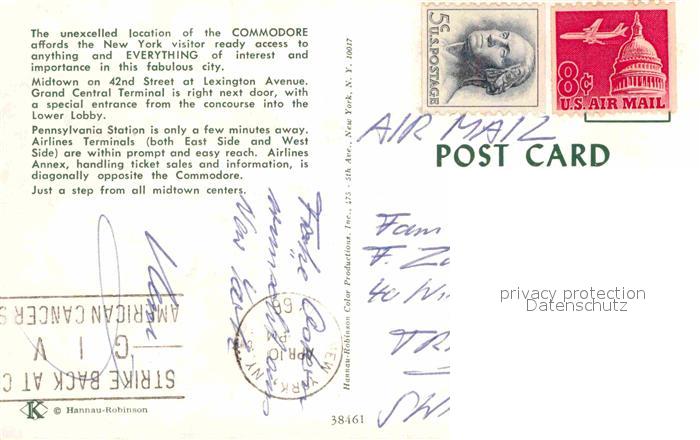 The unexcelled location of the COMMODORE
affords the New York visitor ready access to
anything and EVERYTHING of interest and
importance in this fabulous city.
Midtown on 42nd Street at Lexington Avenue.
Grand Central Terminal is right next door, with
a special entrance from the concourse into the
Lower Lobby.
Pennsylvania Station is only a few minutes away.
Airlines Terminals (both East Side and West
Side) are within prompt and easy reach. Airlines
Annex, handling ticket sales and information, is
diagonally opposite the Commodore.
Just a step from all midtown centers.
STRIKE BACK AT C
GIV
AMERICAN CANCER S
NEW YORK, N.Y.
APR 10
K © Hannau-Robinson
Hannau-Robinson Color Productions, Inc., 475 - 5th Ave., New York, N. Y. 10017
38461
5¢
U.S. POSTAGE
8¢
U.S. AIR MAIL
AIR MAIL
POST CARD
Fam
F. Z
40 Wi
privacy protection
Datenschutz